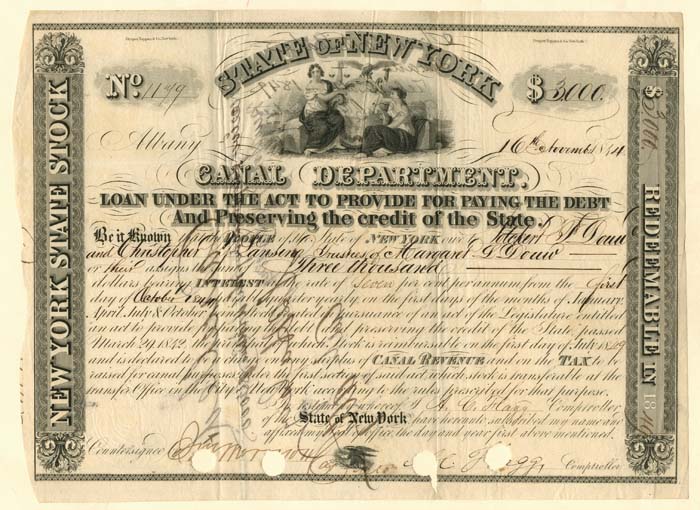 STATE OF NEW YORK
No. 1199
$ 3,000.
Albany 16th November 1844
CANAL DEPARTMENT.
LOAN UNDER THE ACT TO PROVIDE FOR PAYING THE DEBT
And Preserving the credit of the State.
Be it Known the PEOPLE of the State of NEW YORK owe Douw
and Christopher Lansing Trustees of Margaret Douw
or their assigns the sum of Three thousand
dollars bearing INTEREST at the rate of Seven per cent per annum from the first
day of October 1844 quarter yearly on the first days of the months of January
April, July & October in pursuance of an act of the Legislature entitled
an act to provide for paying the debt and preserving the credit of the State, passed
March 29, 1842, the principal of which Stock is reimbursable on the first day of July 1849
and is declared to be a charge on any surplus of CANAL REVENUE and on the TAX to be
raised for canal purposes under the first section of said act which stock is transferable at the
transfer Office in the City of New York according to the rules prescribed for that purpose.
In testimony whereof I, A. C. Flagg Comptroller
of the State of New York have hereunto subscribed my name and
affixed my seal of office, the day and year first above mentioned.
Countersigned
A C Flagg Comptroller
NEW YORK STATE STOCK
REDEEMABLE IN 18